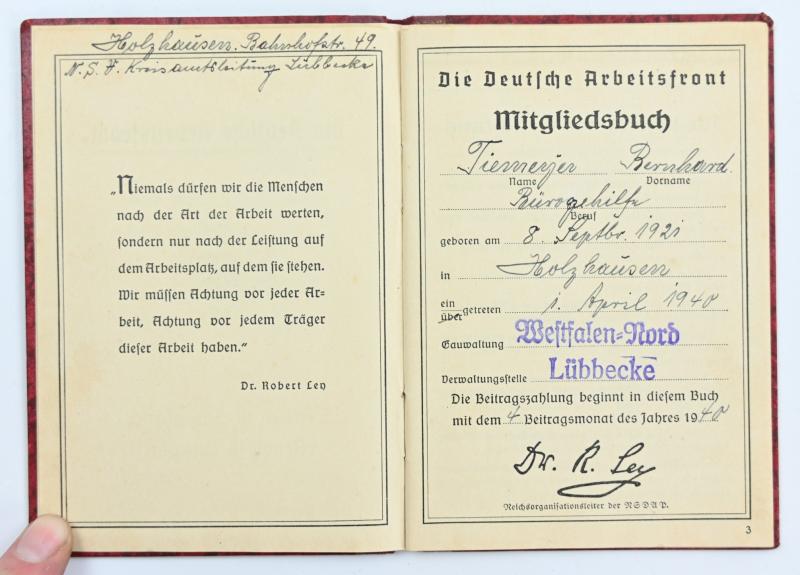 Holzhausen. Bahnhofstr. 49.
N. S. V. Kreisamtsleitung Lübbecke
„Niemals dürfen wir die Menschen
nach der Art der Arbeit werten,
sondern nur nach der Leistung auf
dem Arbeitsplatz, auf dem sie stehen.
Wir müssen Achtung vor jeder Ar=
beit, Achtung vor jedem Träger
dieser Arbeit haben.“
Dr. Robert Ley
Die Deutsche Arbeitsfront
Mitgliedsbuch
Tiemeyer Bernhard.
Name Vorname
Bürogehilfe
Beruf
geboren am 8. Septbr. 1921
in Holzhausen
ein
über getreten 1. April 1940
Gauwaltung Westfalen=Nord
Verwaltungsstelle Lübbecke
Die Beitragszahlung beginnt in diesem Buch
mit dem 4 Beitragsmonat des Jahres 1940
Dr. R. Ley
Reichsorganisationsleiter der NSDAP.
3